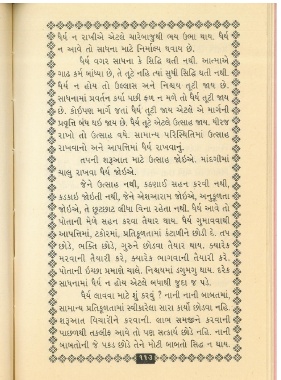 ધૈર્ય ન રાખીએ એટલે ચારેબાજુથી ભય ઉભા થાય. ધૈર્ય
ન આવે તો સાધના માટે નિર્માલ્ય થવાય છે.
ધૈર્ય વગર સાધના કે સિદ્ધિ થતી નથી. આત્માએ
ગાઢ કર્મ બાંધ્યા છે, તે તૂટે નહિ ત્યાં સુધી સિદ્ધિ થતી નથી.
ધૈર્ય ન હોય તો ઉલ્લાસ અને નિશ્ચય તૂટી જાય છે.
સાધનામાં પ્રવર્તન કર્યા પછી ફળ ન મળે તો ધૈર્ય તૂટી જાય
છે. કોઈપણ માર્ગે જતાં ધૈર્ય તૂટી જાય એટલે એ માર્ગની
પ્રવૃત્તિ બંધ થઈ જાય છે. ધૈર્ય તૂટે એટલે ઉત્સાહ જાય. ધીરજ
રાખો તો ઉત્સાહ વધે. સામાન્ય પરિસ્થિતિમાં ઉત્સાહ
રાખવાનો અને આપત્તિમાં ધૈર્ય રાખવાનું.
તપની શરૂઆત માટે ઉત્સાહ જોઈએ. માંદગીમાં
ચાલુ રાખવા ધૈર્ય જોઈએ.
જેને ઉત્સાહ નથી, કઠણાઈ સહન કરવી નથી,
કડકાઈ જોઈતી નથી, જેને એશઆરામ જોઈએ, અનુકૂળતા
જોઈએ, તે છૂટછાટ લીધા વિના રહેતા નથી. ધૈર્ય આવે તો
પોતાની મેળે સહન કરવા તૈયાર થાય. ધૈર્ય ગુમાવવાથી
આપત્તિમાં, ટકોરમાં, પ્રતિકૂળતામાં કંટાળીને છોડી દે. તપ
છોડે, ભક્તિ છોડે, ગુરુને છોડવા તૈયાર થાય. ક્યારેક
મરવાની તૈયારી કરે, ક્યારેક ભાગવાની તૈયારી કરે.
પોતાની ઇચ્છા પ્રમાણે ચાલે. નિશ્ચયમાં ડગુમગુ થાય. દરેક
સાધનામાં ધૈર્ય ન હોય એટલે બધાથી જુદા જ પડે.
ધૈર્ય લાવવા માટે શું કરવું ? નાની નાની બાબતમાં,
સામાન્ય પ્રતિકૂળતામાં સ્વીકારેલા સારા કાર્યો છોડવા નહિ.
શરૂઆત વિચારીને કરવાની. લાભ સમજીને કરવાની
પાછળથી તકલીફ આવે તો પણ સત્કાર્ય છોડે નહિ. નાની
બાબતોની જે પકડ છોડે તેને મોટી બાબતો સિદ્ધ ન થાય.
૧૧૩